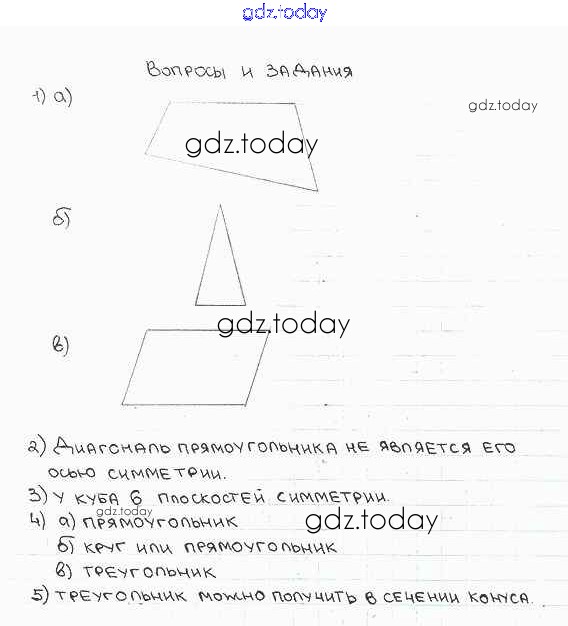 gdz.today
Вопросы и задания
1) а)
gdz.today
gdz.today
б)
gdz.today
в)
2) Диагональ прямоугольника не является его
осью симметрии.
3) У куба 6 плоскостей симметрии.
gdz.today
4) а) прямоугольник
gdz.today
б) круг или прямоугольник
в) треугольник
5) треугольник можно получить в сечении конуса.